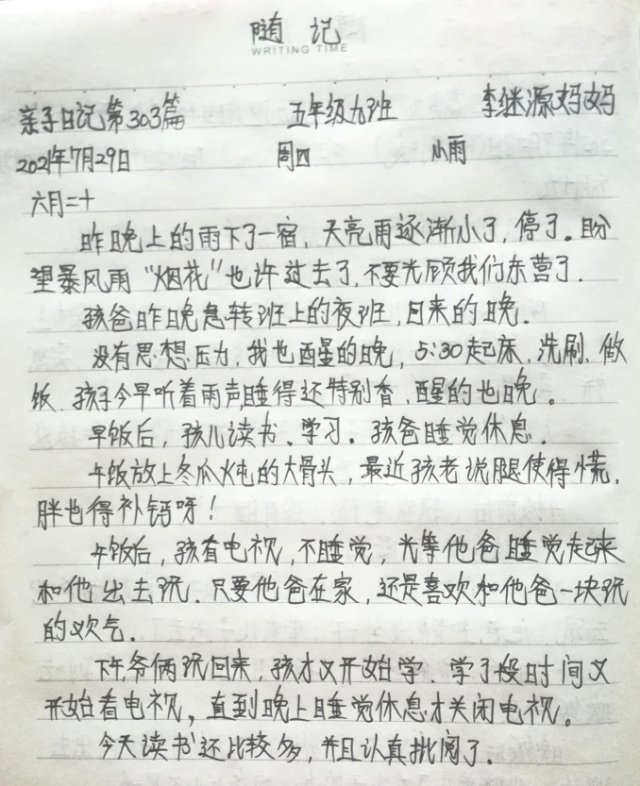 随记
WRITING TIME
亲子日记第303篇 五年级九班 李继源妈妈
2021年7月29日 周四 小雨
六月二十
昨晚上的雨下了一宿，天亮雨逐渐小了，停了。盼
望暴风雨“烟花”也许过去了，不要光顾我们东营了．
孩爸昨晚急转班上的夜班，回来的晚．
没有思想压力，我也醒的晚，5:30起床、洗刷、做
饭．孩子今早听着雨声睡得还特别香，醒的也晚。
早饭后，孩儿读书、学习．孩爸睡觉休息．
午饭放上冬瓜炖的大骨头，最近孩老说腿使得慌，
胖也得补钙呀！
午饭后，孩看电视，不睡觉，光等他爸睡觉起来
和他出去玩．只要他爸在家，还是喜欢和他爸一块玩
的欢气．
下午爷俩玩回来，孩才又开始学 学了段时间又
开始看电视，直到晚上睡觉休息才关闭电视。
今天读书还比较多，并且认真批阅了．